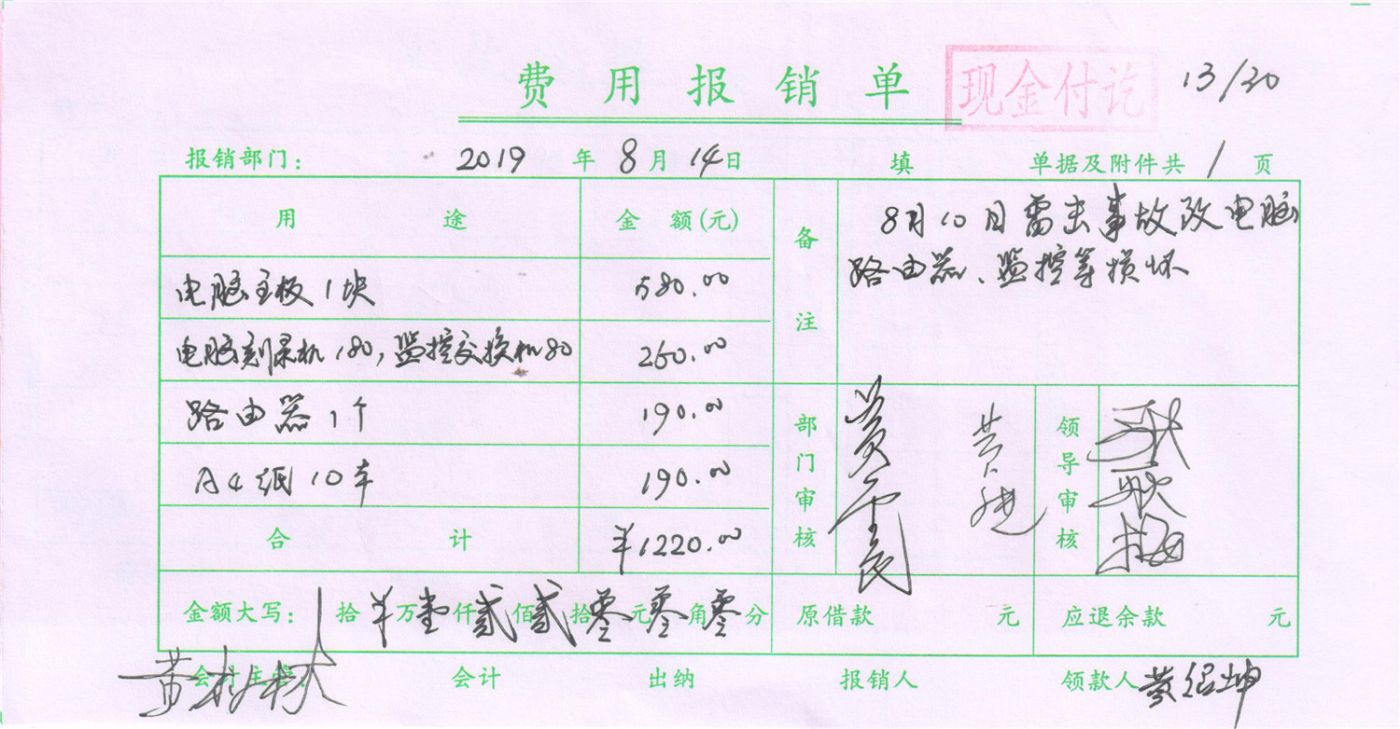 费用报销单 现金付讫 13/20
报销部门： 2019 年 8 月 14 日 填 单据及附件共 1 页
用途 金额(元) 备注 8月10日雷击事故改电脑
路由器、监控等损坏
电脑主板1块 580.00
电脑刻录机180,监控交换机80 260.00
路由器1个 190.00
A4纸10本 190.00
合计 ¥1220.00
部门审核 领导审核
金额大写： 拾 ¥ 万 壹 仟 贰 佰 贰 拾 零 元 零 角 零 分 原借款 元 应退余款 元
会计主管 黄树林 会计 出纳 报销人 领款人 黄绍坤